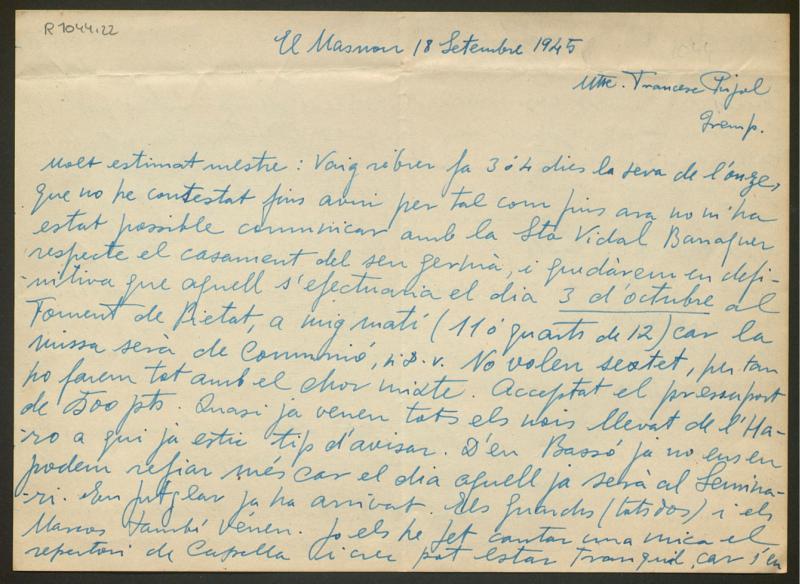 R 1044.22
El Masnou 18 Setembre 1945
Mtre. Francesc Pujol
Tremp.
Molt estimat mestre: Vaig rebrer fa 3 ó 4 dies la seva de l'onze,
que no he contestat fins avui per tal com fins ara no m'ha
estat possible comunicar amb la Sta Vidal Barraquer
respecte el casament del seu germà, i quedàrem en defi-
nitiva que aquell s'efectuaria el dia 3 d'octubre al
Foment de Pietat, a mig matí (11 ó quarts de 12) car la
missa serà de Comunió, n. D. v. No volen sextet, per tan
ho farem tot amb el chor mixte. Acceptat el pressupost
de 500 pts. Quasi ja venen tots els nois llevat de l'Ha-
ro a qui ja estic tip d'avisar. D'en Bassó ja no ens en
podem refiar més car el dia aquell ja serà al Semina-
ri. En Puiglar ja ha arrivat. Els Guinchs (tots dos) i els
Marcos també vénen. Jo els he fet cantar una mica el
repertori de Capella i crec pot estar tranquil, car s'en